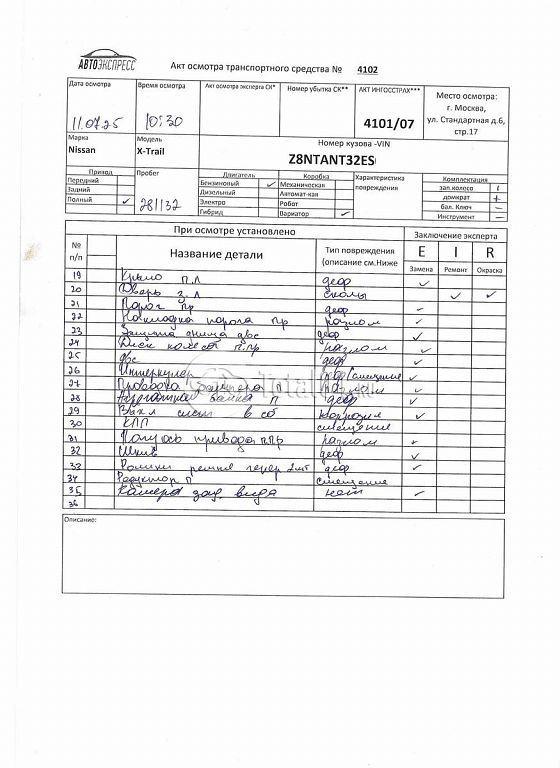 АВТОЭКСПРЕСС
Акт осмотра транспортного средства № 4102
Дата осмотра
11.07.25
Время осмотра
10:30
Акт осмотра эксперта СК*
Номер убытка СК**
АКТ ИНГОССТРАХ***
4101/07
Место осмотра:
г. Москва,
ул. Стандартная д.6,
стр.17
Марка
Nissan
Модель
X-Trail
Номер кузова -VIN
Z8NTANT32ES
Привод
Передний
Задний
Полный ✓
Пробег
281132
Двигатель
Бензиновый ✓
Дизельный
Электро
Гибрид
Коробка
Механическая
Автомат-кая
Робот
Вариатор ✓
Характеристика
повреждения
Комплектация
зап.колесо
домкрат +
бал. Ключ –
Инструмент –
При осмотре установлено
Заключение эксперта
№
п/п
Название детали
Тип повреждения
(описание см.Ниже
E I R
Замена Ремонт Окраска
19 Крыло п.л деф ✓
20 Дверь з.л сколы ✓ ✓
21 Порог пр деф ✓
22 Накладка порога пр разлом ✓
23 Защита днища двс деф ✓
24 Диск колеса п.пр разлом ✓
25 двс деф ✓
26 Интеркулер деф/смещение ✓
27 Проводка бампера п разлом ✓
28 бачка п деф ✓
29 Выхл сист в сб коррозия ✓
30 КПП смещение
31 Полуось привода п.пр разлом ✓
32 Шкив деф ✓
33 Ролики ремня генер 2шт деф ✓
34 Редуктор п смещение
35 Камера зад вида нет ✓
36
Описание: